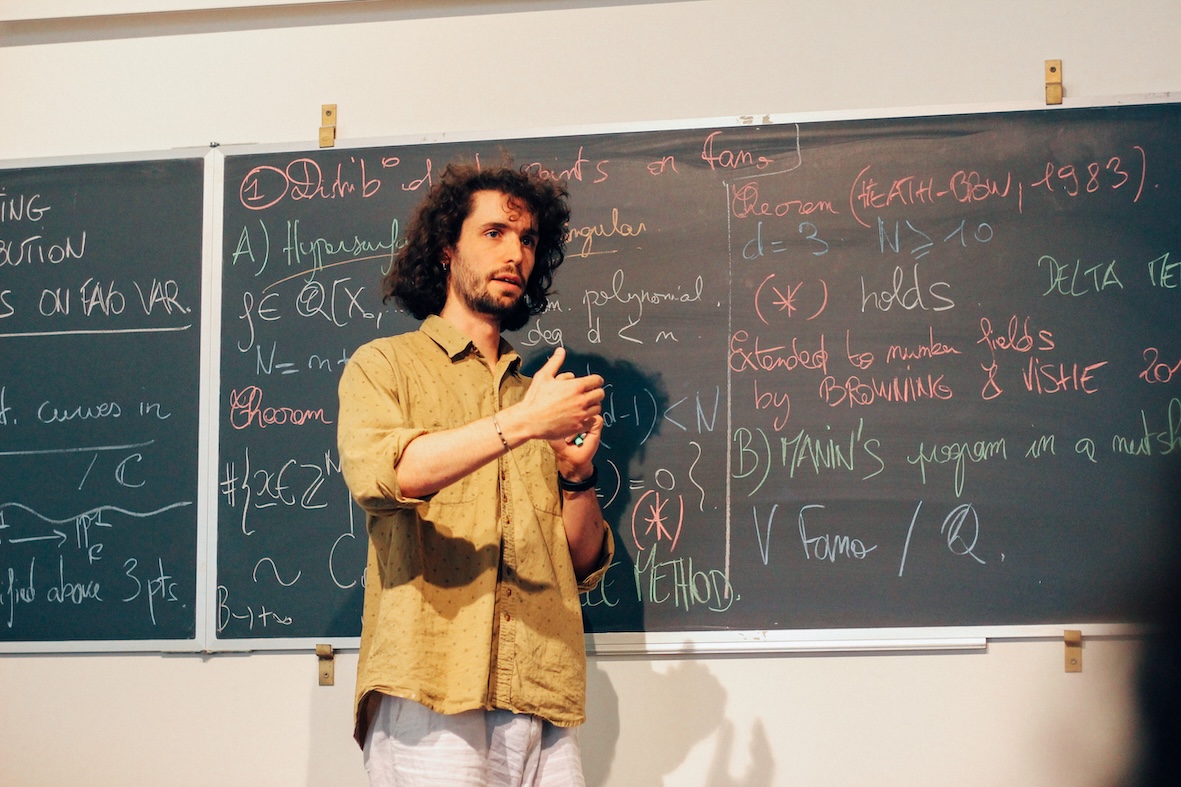 ING
BUTION
S ON FANO VAR.
curves in
/ ℂ
→ ℙ¹
above 3 pts.
① Distrib° points on Fano
A) Hypersurf ngular.
f ∈ ℚ[X₀, polynomial.
deg d < n
N = n+
Theorem
d-1) < N
#{x ∈ ℤᴺ ) = 0}
(*)
~ C
B→+∞
LE METHOD.
Theorem (HEATH-BROW, 1983).
d = 3. N ⩾ 10
(*) holds.
DELTA ME
Extended to number fields
by BROWNING & VISHE 20
B) MANIN'S program in a nutsh
V Fano / ℚ.